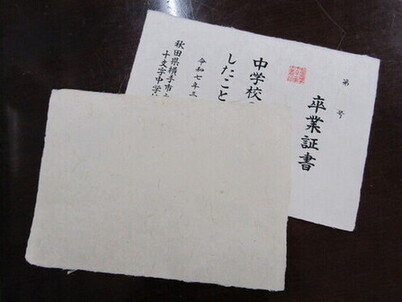 第 号
卒業証書
中学校
したこと
令和七年三
秋田県横手市
十文字中学